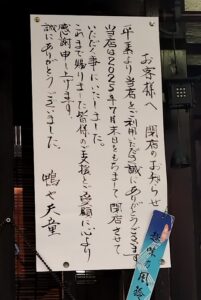 お客様へ 閉店のお知らせ
平素より当店をご利用いただき誠にありがとうございます
当店は2025年7月末日をもちまして閉店させて
いただく事にいたしました。
これまで賜りました皆様のご支援とご愛顧に心より
感謝申し上げます。
誠にありがとうございました。
鴨や天童